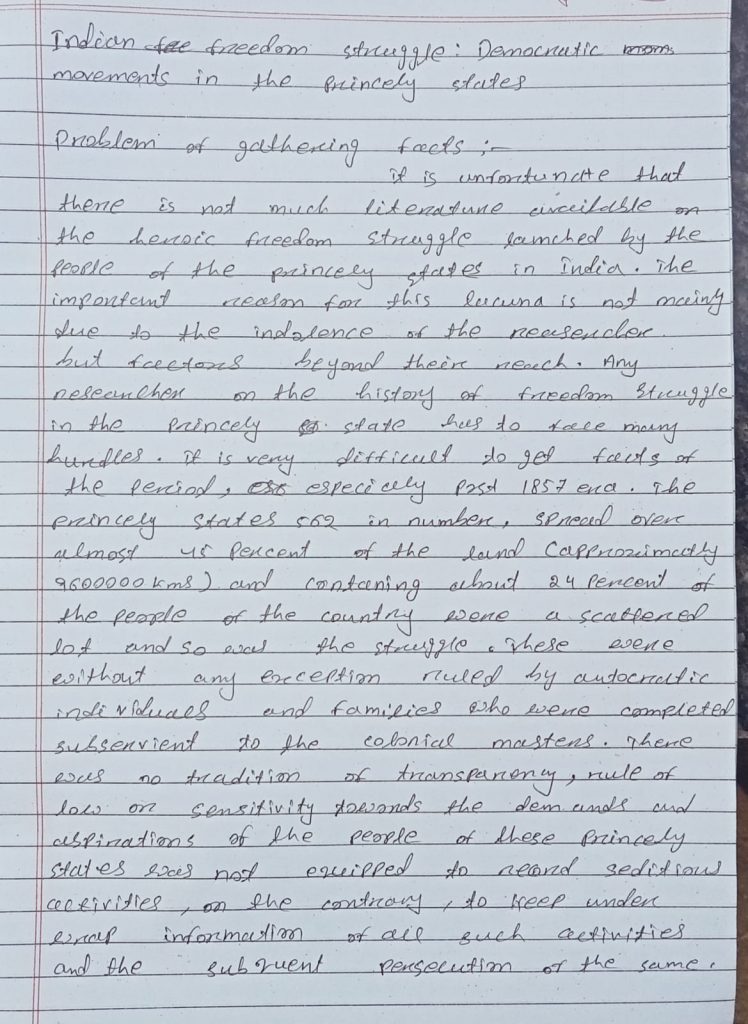 Indian freedom struggle: Democratic
movements in the princely states
Problem of gathering facts :-
it is unfortunate that
there is not much literature available on
the heroic freedom struggle launched by the
people of the princely states in India. The
important reason for this lacuna is not mainly
due to the indolence of the reasercher
but factors beyond their reach. Any
researcher on the history of freedom struggle
in the princely state has to face many
hurdles. it is very difficult to get facts of
the period, especially post 1857 era. The
princely states 562 in number, spread over
almost 45 percent of the land (approximatly
9600000 kms) and containg about 24 percent of
the people of the country were a scattered
lot and so was the struggle. These were
without any exception ruled by autocratic
individuals and families who were completed
subservient to the colonial masters. There
was no tradition of transparency, rule of
law or sensitivity towards the demands and
aspirations of the people of these princely
states was not equipped to record seditious
activities, on the contrary, to keep under
wrap information of all such activities
and the subquent persecution of the same.